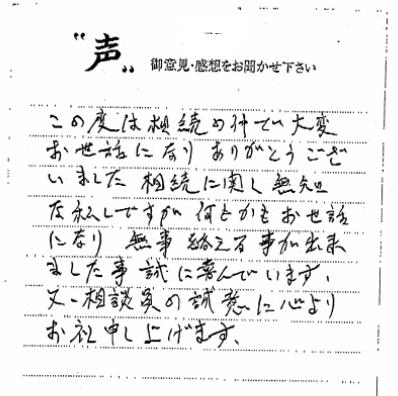 “声” 御意見・感想をお聞かせ下さい
この度は相続の件で大変
お世話になりありがとうござ
いました 相続に関し無知
な私しですが何もかもお世話
になり 無事終える事が出来
ました事誠に喜んでいます、
又、相談員の誠意に心より
お礼申し上げます、